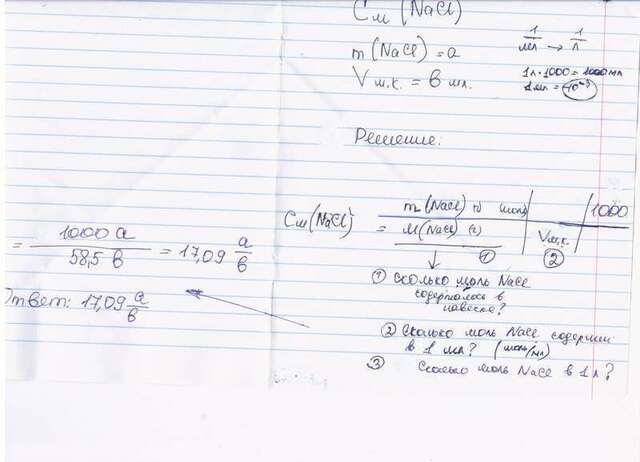 См (NaCl)
m (NaCl) = а
V м.к. = в мл.
1/мл → 1/л
1л·1000 = 1000мл
1мл = 10⁻³
Решение:
См (NaCl) = m (NaCl) г) (моль) 1000
М (NaCl) (г) Vм.к.
① ②
= 1000 а / 58,5 в = 17,09 а/в
Ответ: 17,09 а/в
① Сколько моль NaCl
содержалось в
навеске?
② Сколько моль NaCl содержит
в 1 мл? (моль/мл)
③ Сколько моль NaCl в 1 л?